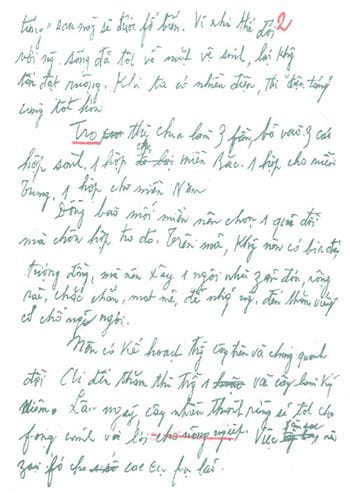 táng" sau này sẽ được fổ biến. Vì như thế đối 2
với ng. sống đã tốt về mặt vệ sinh, lại khg
tốn đất ruộng. Khi ta có nhiều điện, thì "điện táng"
càng tốt hơn.
Tro thì chia làm 3 fần, bỏ vào 3 cái
hộp sành. 1 hộp cho miền Bắc. 1 hộp cho miền
Trung. 1 hộp cho miền Nam
Đồng bào mỗi miền nên chọn 1 quả đồi
mà chôn hộp tro đó. Trên mả, khg nên có bia đá
tượng đồng, mà nên xây 1 ngôi nhà zản đơn, rộng
rãi, chắc chắn, mát mẻ, để nhg ng. đến thăm viếng
có chỗ nghỉ ngơi.
Nên có kế hoạch trg cây trên và chung quanh
đồi. Ai đến thăm thì trg 1 vài cây làm kỷ
niệm. Lâu ngày, cây nhiều thành rừng sẽ tốt cho
fong cảnh và lợi cho nông nghiệp. Việc săn sóc nên
zao fó cho các cụ fụ lão.